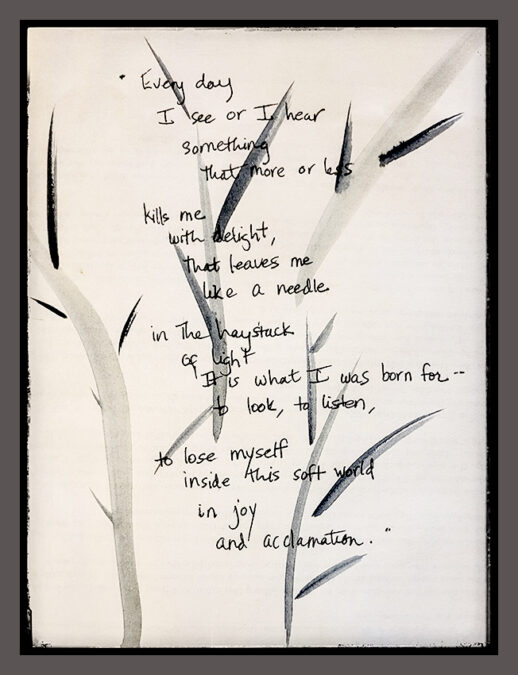 " Every day
I see or I hear
something
that more or less
kills me
with delight,
that leaves me
like a needle
in The haystack
of light
It is what I was born for--
to look, to listen,
to lose myself
inside this soft world
in joy
and acclamation."